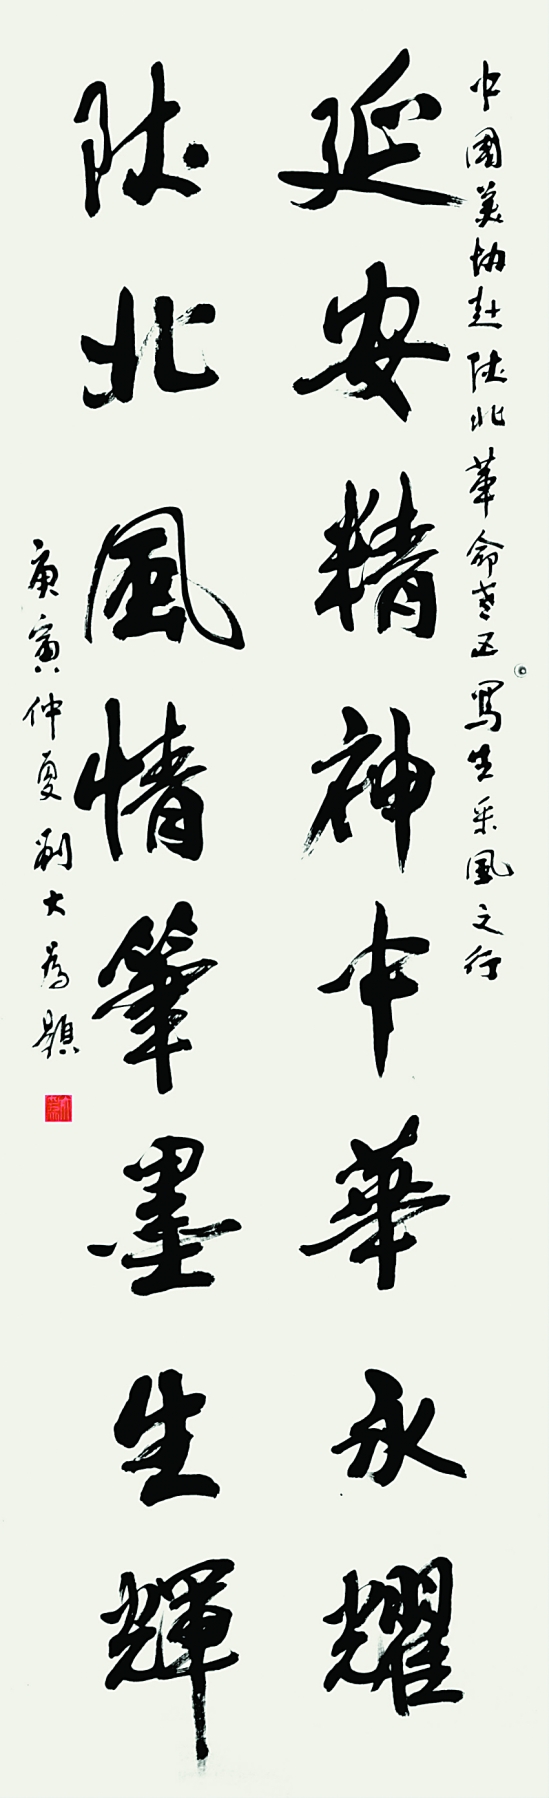 中國美協赴陕北革命老区写生采風之行
延安精神中華永耀
陕北風情筆墨生輝
庚寅仲夏劉大為題